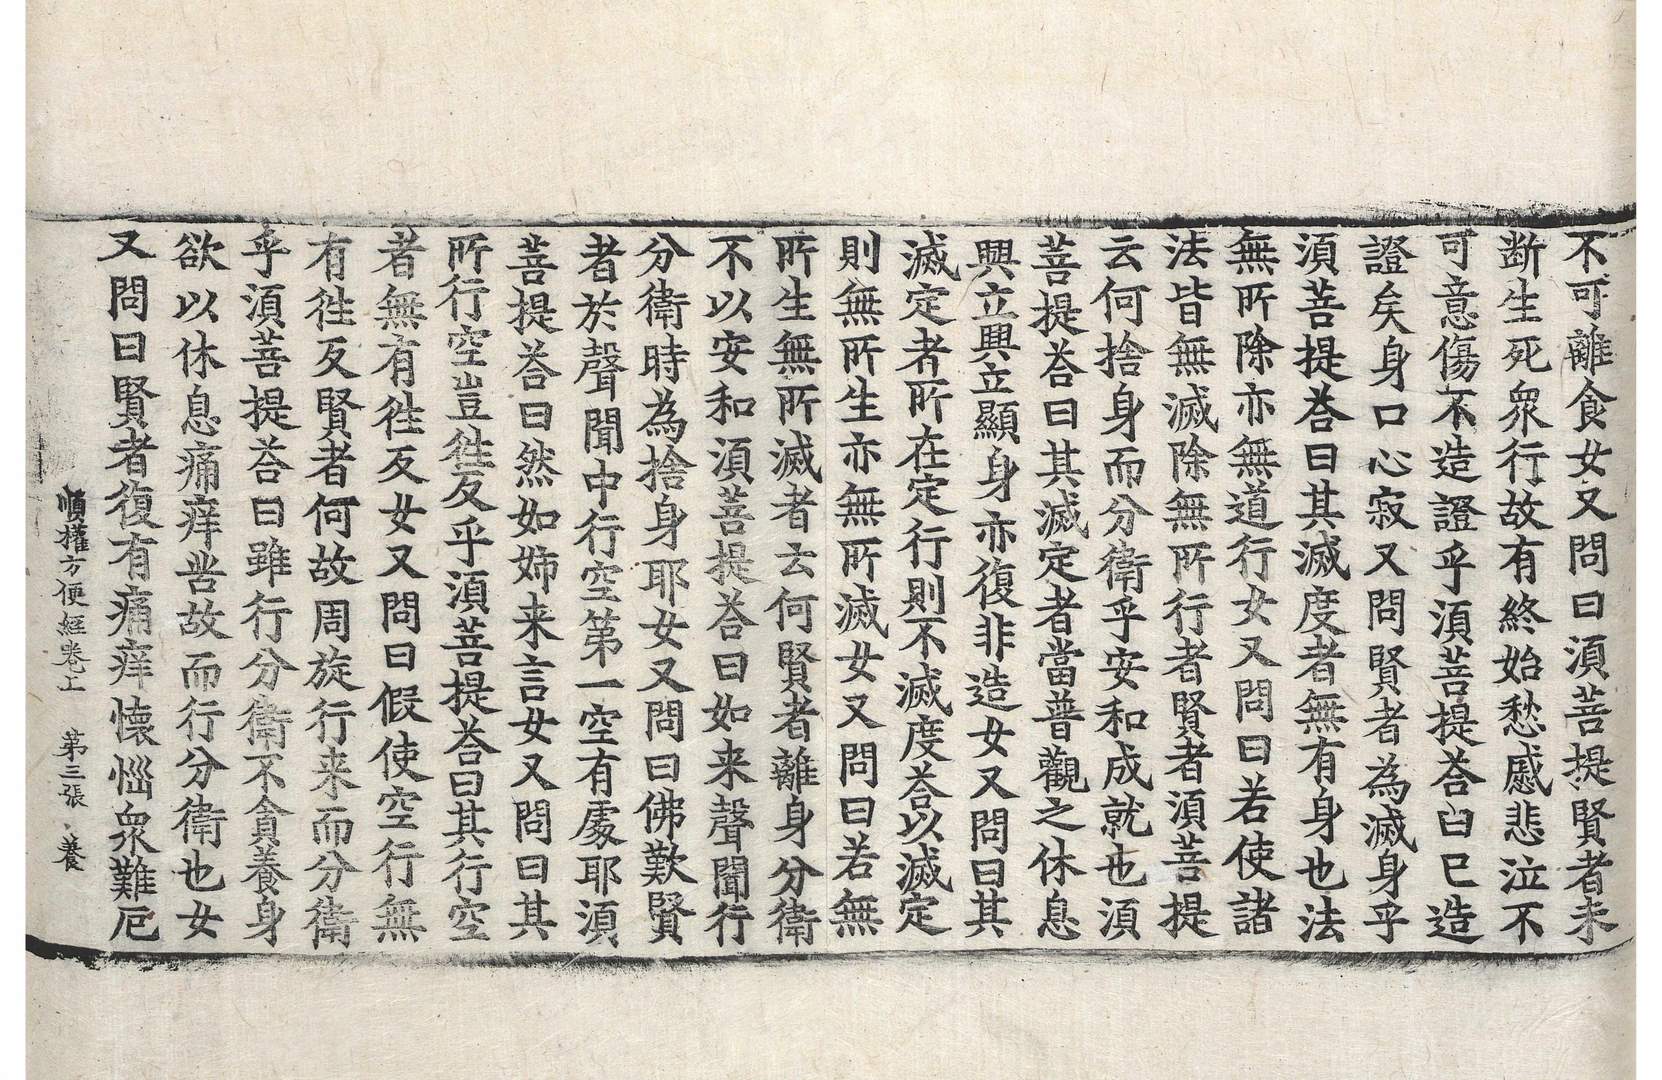 不可離食女又問曰須菩提賢者未
断生死衆行故有終始愁慼悲泣不
可意傷不造證乎須菩提荅曰已造
證矣身口心寂又問賢者為滅身乎
須菩提荅曰其滅度者無有身也法
無所除亦無道行女又問曰若使諸
法皆無滅除無所行者賢者須菩提
云何捨身而分衛乎安和成就也須
菩提荅曰其滅定者當普觀之休息
興立興立顯身亦復非造女又問曰其
滅定者所在定行則不滅度荅以滅定
則無所生亦無所滅女又問曰若無
所生無所滅者云何賢者離身分衛
不以安和須菩提荅曰如来聲聞行
分衛時為捨身耶女又問曰佛歎賢
者於聲聞中行空第一空有處耶須
菩提荅曰然如姉来言女又問曰其
所行空豈徃反乎須菩提荅曰其行空
者無有徃反女又問曰假使空行無
有徃反賢者何故周旋行来而分衛
乎須菩提荅曰雖行分衛不貪養身
欲以休息痛痒甞故而行分衛也女
又問曰賢者復有痛痒懐惱衆難厄
順權方便經卷上　第三張　養